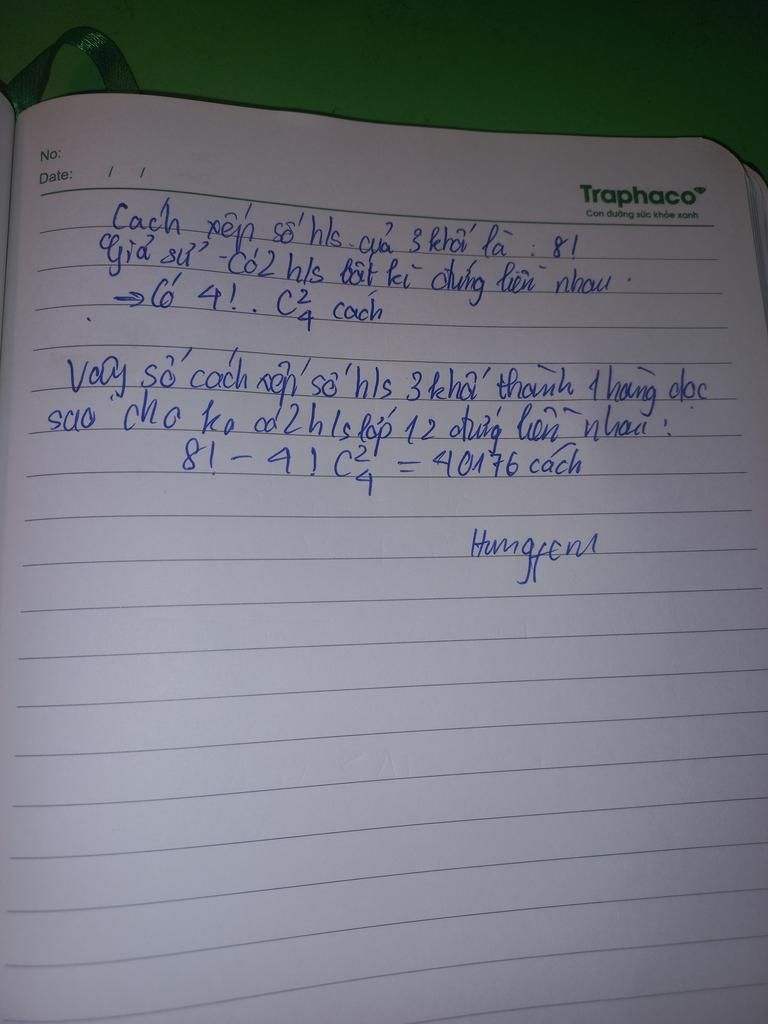 No:
Date: / /
Traphaco
Con đường sức khỏe xanh
Cách xếp số h/s của 3 khối là : 8!
Giả sử có 2 h/s bất kì đứng liền nhau.
→ Có 4! . C²₄ cách
Vậy số cách xếp số h/s 3 khối thành 1 hàng dọc
sao cho ko có 2 h/s lớp 12 đứng liền nhau:
8! - 4! C²₄ = 40176 cách